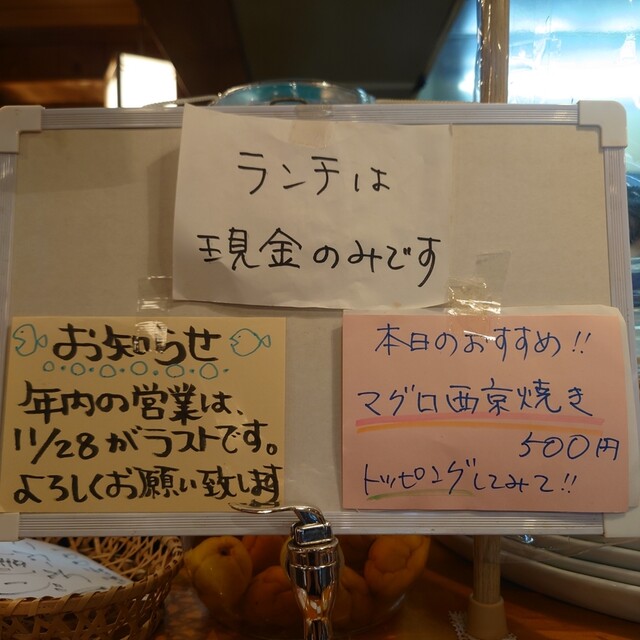 ランチは
現金のみです
お知らせ
年内の営業は、
11/28がラストです。
よろしくお願い致します
本日のおすすめ!!
マグロ西京焼き
500円
トッピングしてみて!!